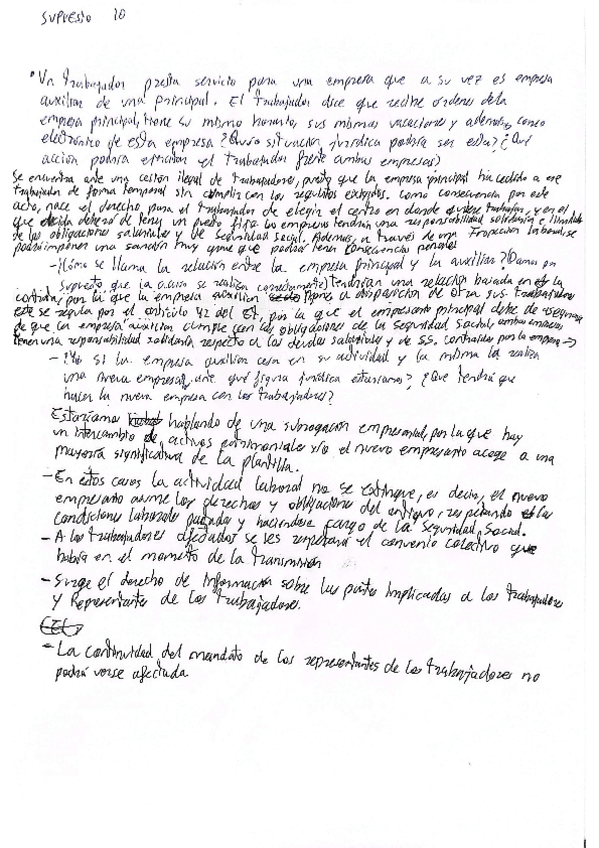 SUPUESTO 10
• Un trabajador presta servicio para una empresa que a su vez es empresa
auxiliar de una principal. El trabajador dice que recibe órdenes de la
empresa principal, tiene su mismo horario, sus mismas vacaciones y además, correo
electrónico de esta empresa ? situación jurídica podría ser esta? ¿Qué
acción podría el trabajador frente ambas empresas?
Se encuentra ante una cesión ilegal de trabajadores, puesto que la empresa principal ha cedido a ese
trabajador de forma temporal sin cumplir con los requisitos exigidos. Como consecuencia por este
acto, nace el derecho para el trabajador de elegir el centro en donde quiere trabajar, y en el
que decida deberá de tener un puesto fijo. Las empresas tendrán una responsabilidad solidaria e ilimitada
de las obligaciones salariales y de seguridad social. Además, a través de una laboral se
podrá imponer una sanción muy grave que podrá tener consecuencias penales
- ¿Cómo se llama la relación entre la empresa principal y la auxiliar? (Damos por
supuesto que la se realiza correctamente) Tendrían una relación basada en la
contrata, por la que la empresa auxiliar pone a disposición de otra sus trabajadores
este se regula por el artículo 42 del ET, por la que el empresario principal debe de asegurarse
de que la empresa auxiliar cumple con las obligaciones de la Seguridad Social, ambas empresas
tienen una responsabilidad solidaria respecto a las deudas salariales y de SS. contraídas por la empresa →
- ¿Y si la empresa auxiliar cesa en su actividad y la misma la realiza
una nueva empresa, ante qué figura jurídica estaríamos? ¿Qué tendrá que
hacer la nueva empresa con los trabajadores?
Estaríamos hablando de una subrogación empresarial, por la que hay
un intercambio de activos patrimoniales y/o el nuevo empresario acoge a una
mayoría significativa de la plantilla.
- En estos casos la actividad laboral no se extingue, es decir, el nuevo
empresario asume los derechos y obligaciones del antiguo, respetando las
condiciones laborales y haciéndose cargo de la Seguridad Social.
- A los trabajadores afectados se les respetará el convenio colectivo que
había en el momento de la transmisión
- Surge el derecho de información sobre las partes implicadas a los trabajadores
y Representantes de los Trabajadores.
- La continuidad del mandato de los representantes de los trabajadores no
podrá verse afectada